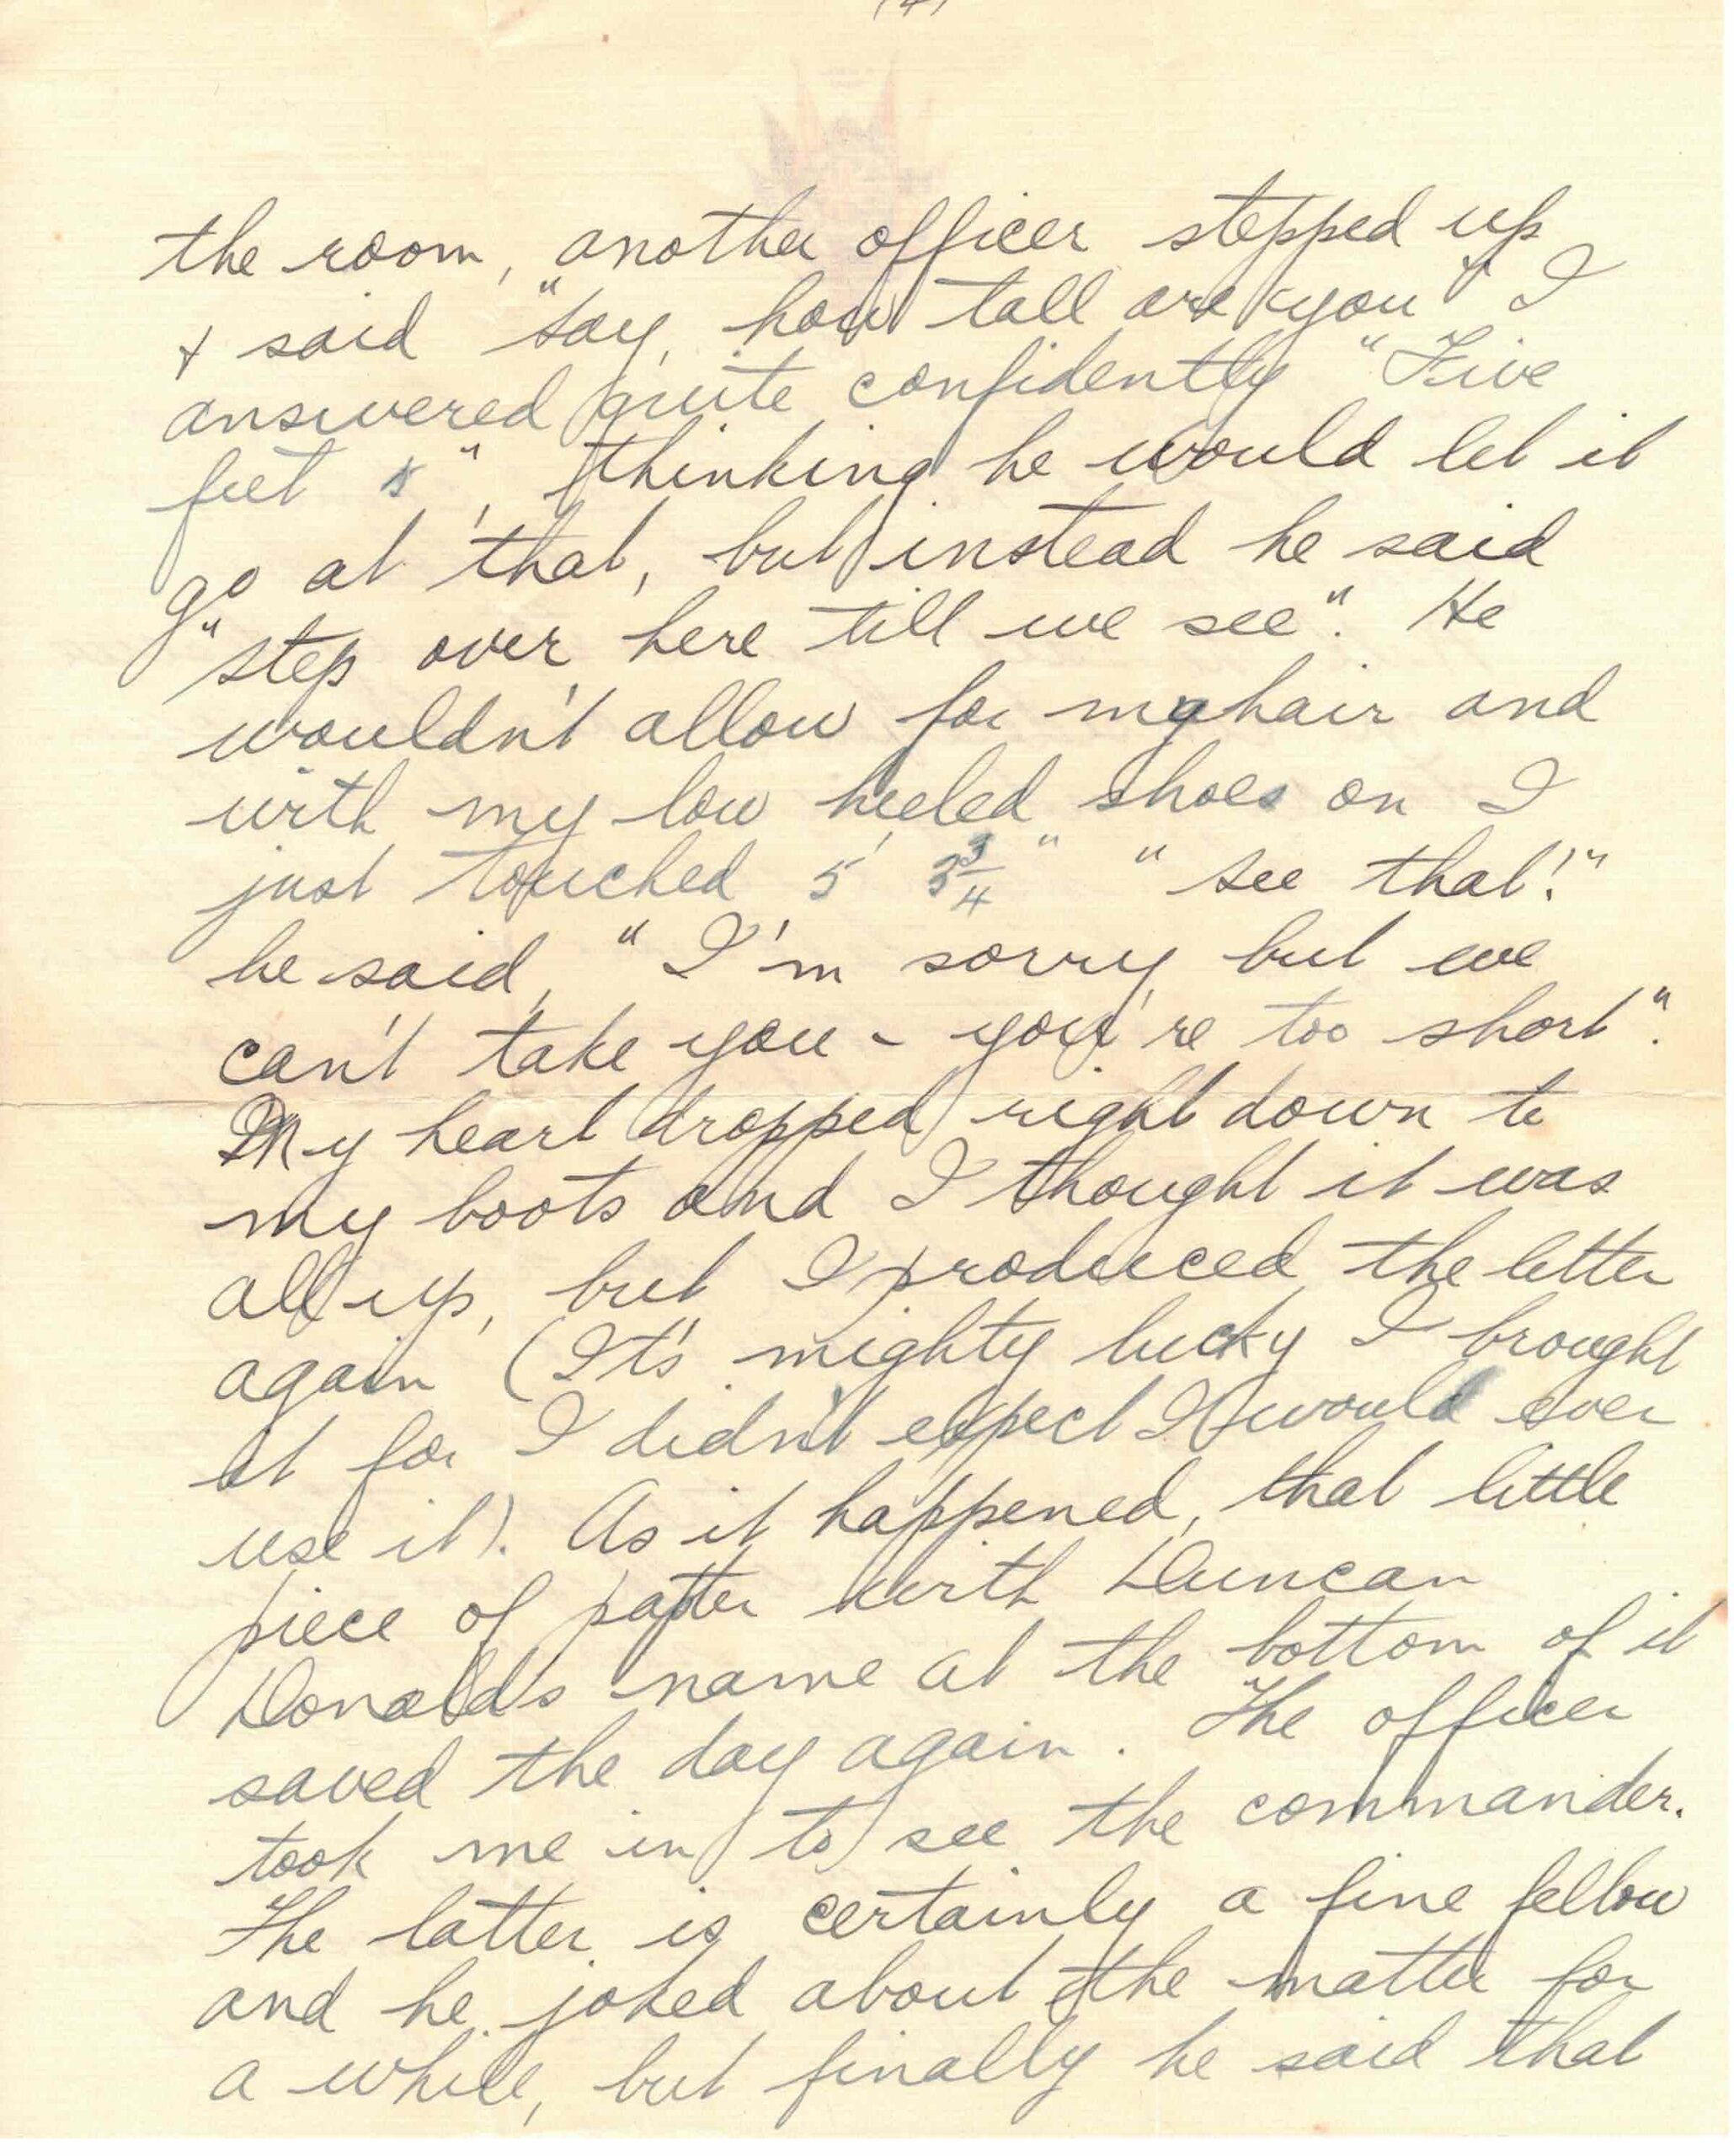 (4)
the room, another officer stepped up
+ said "say, how tall are you" I
answered quite confidently "Five
feet 5", thinking he would let it
go at that, but instead he said
"step over here till we see". He
wouldn't allow for my hair and
with my low heeled shoes on I
just touched 5' 3 3/4" "see that!"
he said, "I'm sorry but we
can't take you - you're too short".
My heart dropped right down to
my boots and I thought it was
all up, but I produced the letter
again (It's mighty lucky I brought
it for I didn't expect I would ever
use it). As it happened, that little
piece of patter with Duncan
Donald's name at the bottom of it
saved the day again. The officer
took me in to see the commander.
The latter is certainly a fine fellow
and he joked about the matter for
a while, but finally he said that